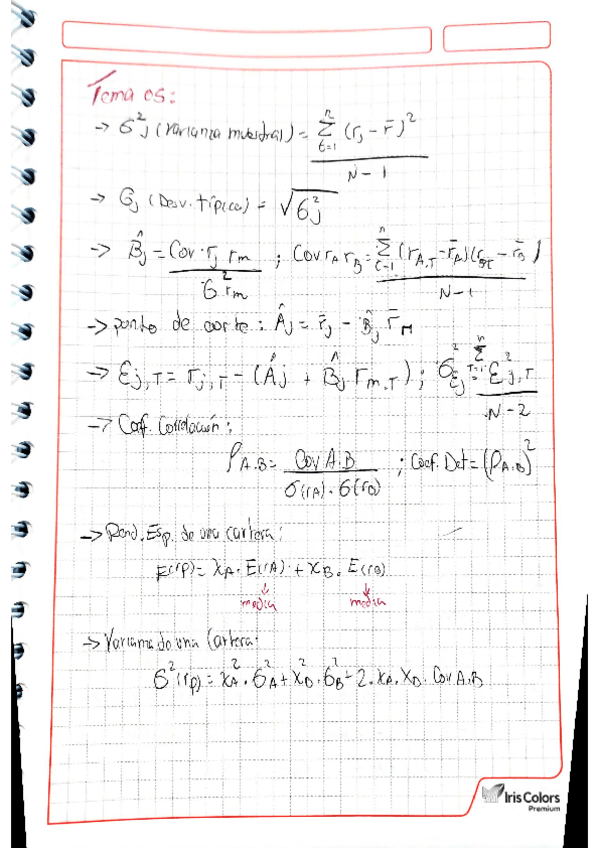 Tema 05:
→ σ²j (Varianza muestral) = Σ(t=1, n) (rj - r̄)² / N-1
→ σj (Desv. típica) = √σ²j
→ B̂j = Cov rj rm / σ² rm ; Cov rA rB = Σ(t=1, n) (rA,T - r̄A)(rBT - r̄B) / N-1
→ punto de corte: Âj = r̄j - B̂j r̄M
→ Ɛj,T = rj,T - (Âj + B̂j rm,T) ; σ²Ɛj = Σ(T=1, n) Ɛ²j,T / N-2
→ Coef. Correlación:
ρA.B = Cov A.B / σ(rA) · σ(rB) ; Coef. Det = (ρA.B)²
→ Rend. Esp. de una cartera:
E(rp) = XA · E(rA) + XB · E(rB)
↓ media ↓ media
→ Varianza de una Cartera:
σ²(rp) = X²A · σ²A + X²B · σ²B + 2 · XA · XB · Cov A.B
Iris Colors
Premium